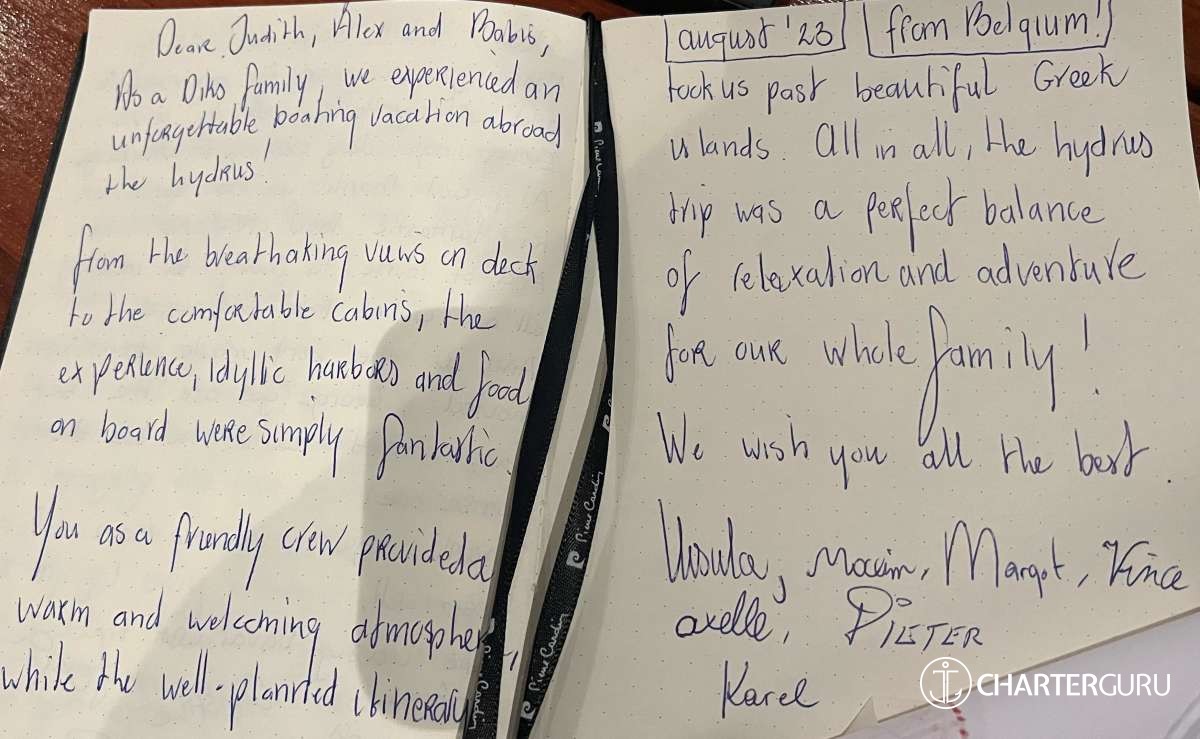 Deare Judith, Alex and Babis,
As a Diks family, we experienced an
unforgettable boating vacation abroad
the hydrus!
from the breathaking views on deck
to the comfortable cabins, the
experience, Idyllic harbors and food
on board were simply fantastic.
You as a friendly crew provided a
warm and welcoming atmospher,
while the well-planned itinerary
august '23 from Belgium!
took us past beautiful Greek
islands. All in all, the hydrus
trip was a perfect balance
of relaxation and adventure
for our whole family!
We wish you all the best
Ursula, Maxim, Margot, Vince
axelle, PIETER
Karel
Pierre Cardin
Pierre Cardin
Pierre Cardin
CHARTERGURU